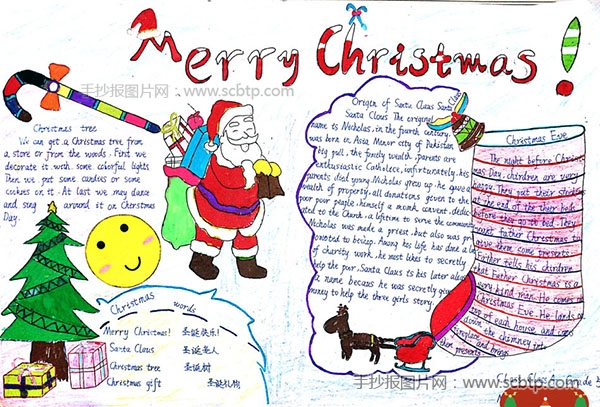 Merry Christmas!
手抄报图片网：www.scbtp.com
Christmas tree
We can get a Christmas tree from
a store or from the woods. First we
decorate it with some colorful lights
Then we put some candies or some
cookies on it. At last we may dance
and sing around it on Christmas
Day.
Christmas words
Merry Christmas! 圣诞快乐!
Santa Claus 圣诞老人
Christmas tree 圣诞树
Christmas gift 圣诞礼物
Origin of Santa Claus Santa
Santa Claus The original
name is Nicholas, in the fourth century,
was born in Asia Minor city of Pakistan
big pull, the family wealth, parents are
enthusiastic Catholece, unfortunately, his
parents died young. Nicholas grew up, he gave a
wealth of property, all donations given to the
poor poor people, himself a monk, convent, dedica
ted to the Church, a lifetime to serve the community
Nicholas was made a priest, but also was pr
omoted to bishop. Among his life has done a lot
of charity work, he most likes to secretly
help the poor, Santa Claus is his later alias
name because he was secretly giving
money to help the three girls story.
Santa Claus
Christmas Eve
The night before Christ
mas Day, children are very
happy. They put their stockings
at the end of their beds
before they go to bed. They
want father Christmas to
give them some presents.
Father tells his children
that Father Christmas is a
very kind man. He comes on
Christmas Eve. He lands on
top of each house and comes
down the chimney into
fireplace and brings
them presents
手抄报图片网：www.scbtp.com